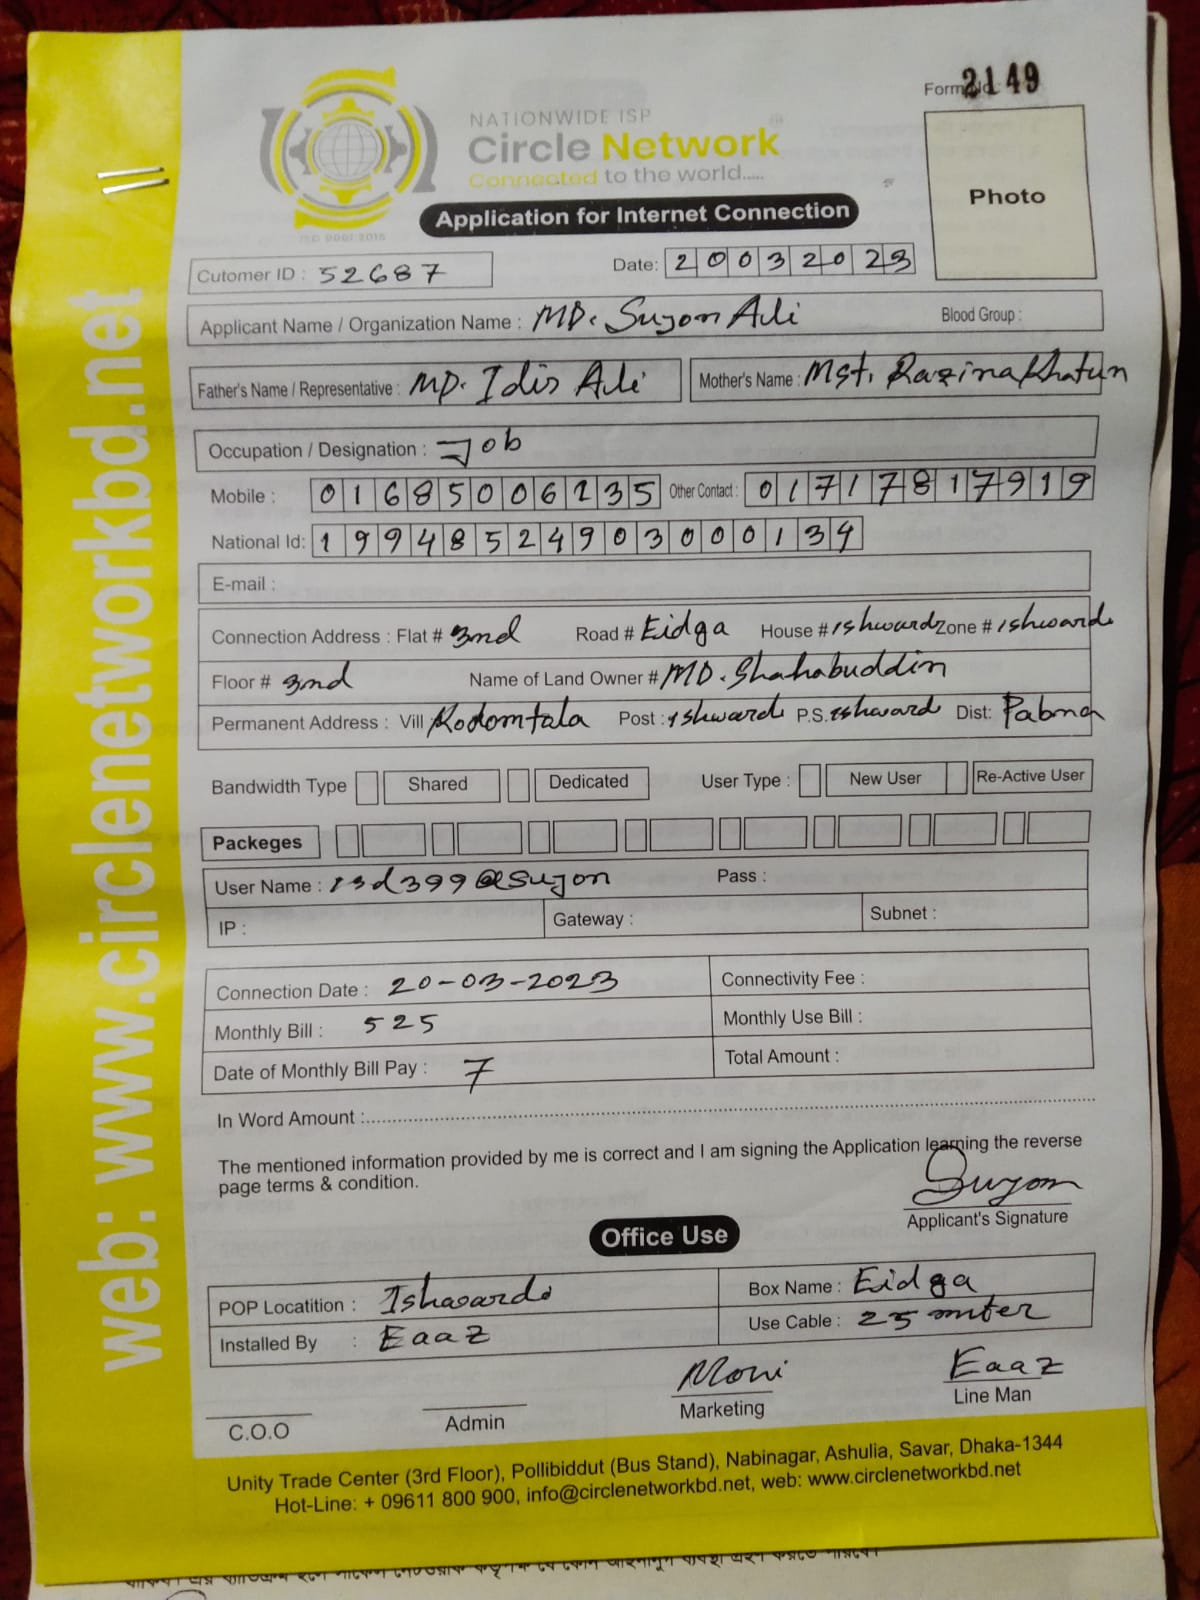 Form No: 2149
NATIONWIDE ISP
Circle Network
Connected to the world.....
ISO 9001:2015
Application for Internet Connection
Photo
Cutomer ID : 52687
Date: 20032023
Applicant Name / Organization Name : MD. Sujon Ali Blood Group :
Father's Name / Representative : MD. Idis Ali Mother's Name : Mst. Razina Khatun
Occupation / Designation : Job
Mobile : 01685006235 Other Contact : 01717817919
National Id: 19948524903000134
E-mail :
Connection Address : Flat # 3nd Road # Eidga House # ishwardi Zone # ishwardi
Floor # 3nd Name of Land Owner # MD. Shahabuddin
Permanent Address : Vill Kodomtala Post : ishwardi P.S. ishwardi Dist: Pabna
Bandwidth Type Shared Dedicated User Type : New User Re-Active User
Packeges
User Name : isd399@sujon Pass :
IP : Gateway : Subnet :
Connection Date : 20-03-2023 Connectivity Fee :
Monthly Bill : 525 Monthly Use Bill :
Date of Monthly Bill Pay : 7 Total Amount :
In Word Amount :
The mentioned information provided by me is correct and I am signing the Application learning the reverse
page terms & condition.
Sujon
Applicant's Signature
Office Use
POP Locatition : Ishwardi Box Name : Eidga
Installed By : Eaaz Use Cable : 25 miter
Moni Eaaz
C.O.O Admin Marketing Line Man
Unity Trade Center (3rd Floor), Pollibiddut (Bus Stand), Nabinagar, Ashulia, Savar, Dhaka-1344
Hot-Line: + 09611 800 900, info@circlenetworkbd.net, web: www.circlenetworkbd.net
web: www.circlenetworkbd.net